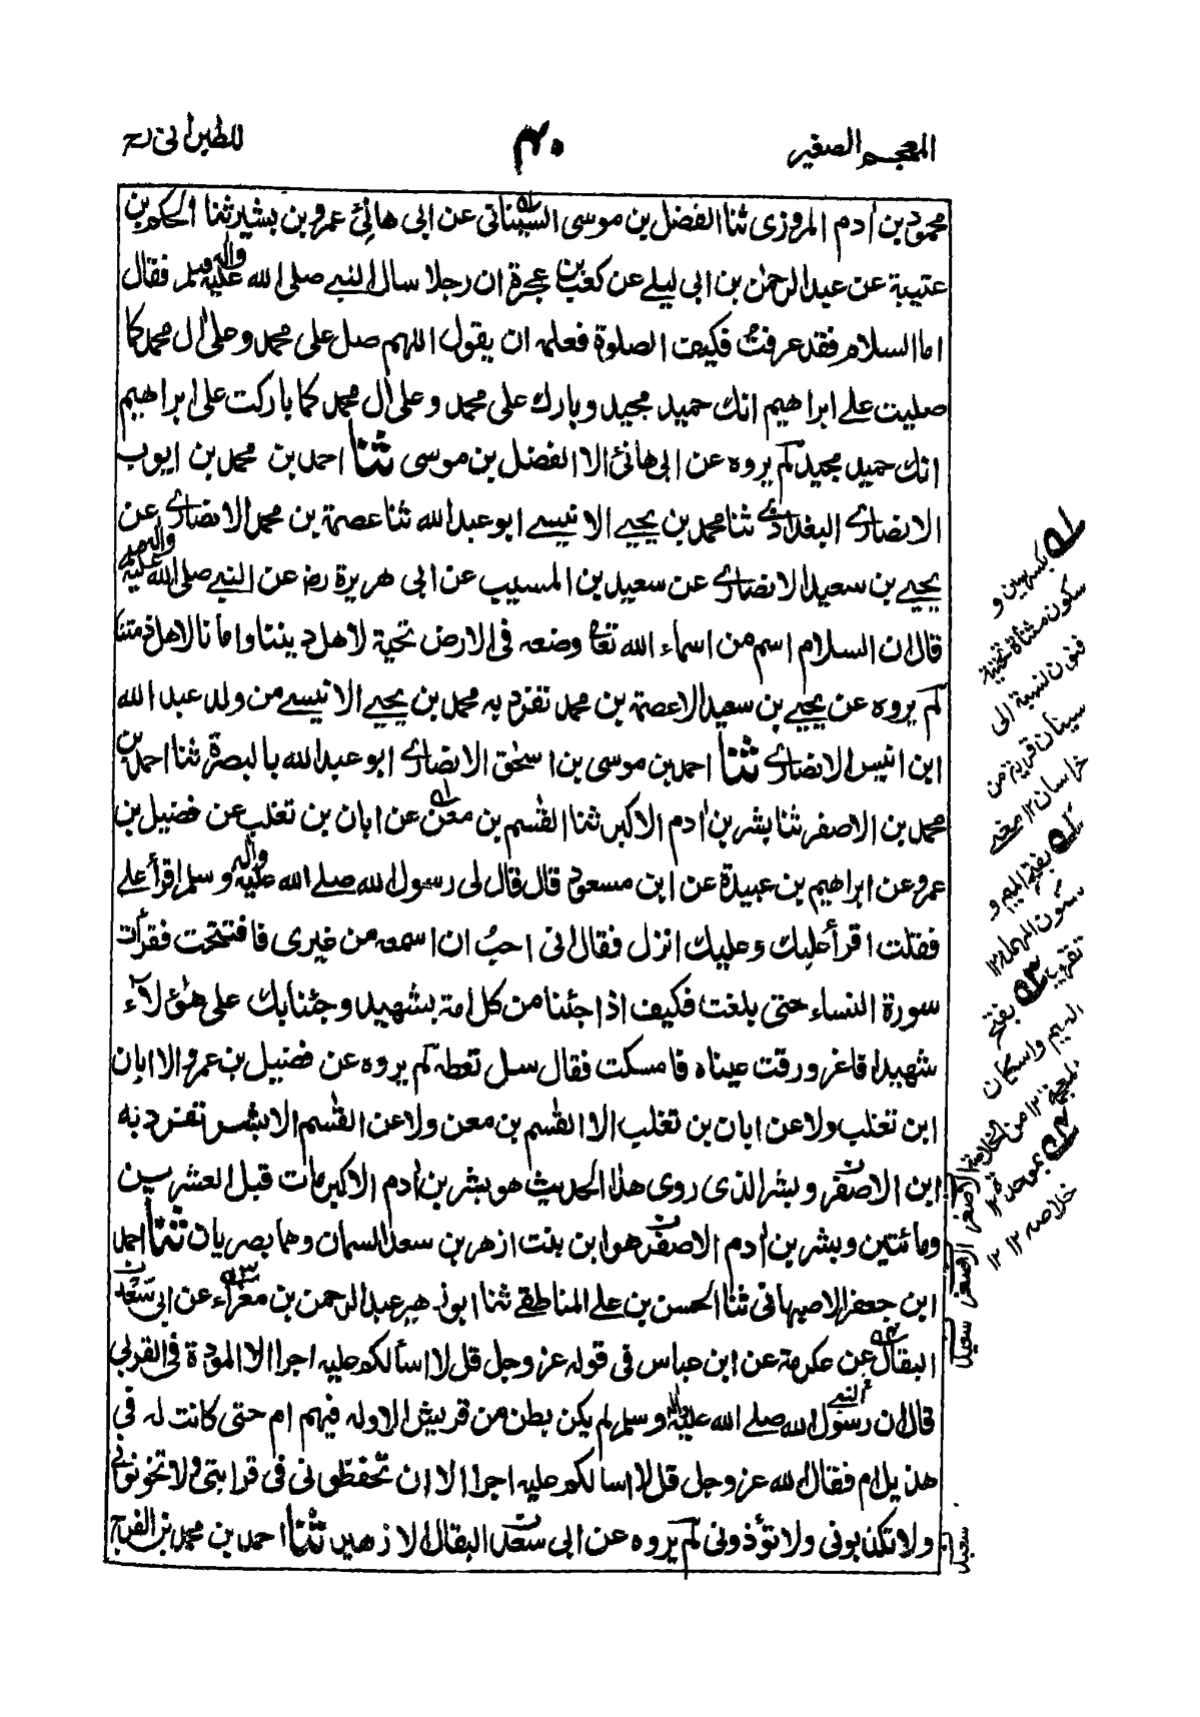 المعجم الصغير
٤٠
للطبراني رح
محمود بن اٰدم المروزى ثنا الفضل بن موسى السيناني عن ابى هانئ عمرو بن بشير ثنا الحكم بن
عتيبة عن عبد الرحمٰن بن ابى ليلے عن كعب بن عجرة ان رجلا سال النبے صلى الله عليه واٰله وسلم فقال
اما السلام فقد عرفتُ فكيف الصلوة فعلمه ان يقول اللهم صل على محمد وعلى اٰل محمد كما
صليت علے ابراهيم انك حميد مجيد وبارك على محمد وعلى اٰل محمد كما باركت على ابراهيم
انك حميد مجيد لم يروه عن ابى هانئ الا الفضل بن موسى ثنا احمد بن محمد بن ايوب
الانصارے البغدادے ثنا محمد بن يحيے الانيسے ابو عبد الله ثنا عصمة بن محمد الانصارے عن
يحيے بن سعيد الانصارے عن سعيد بن المسيب عن ابى هريرة رضه عن النبے صلى الله عليه واٰله
قال ان السلام اسم من اسماء الله تعا وضعه فى الارض تحية لاهل ديننا وامانا لاهل ذمتنا
لم يروه عن يحيے بن سعيد الا عصمة بن محمد تفرد به محمد بن يحيے الانيسے من ولد عبد الله
ابن انيس الانصارے ثنا احمد بن موسى بن اسحٰق الانصارے ابو عبد الله بالبصرة ثنا احمد بن
محمد بن الاصفر ثنا بشر بن اٰدم الاكبر ثنا القٰسم بن معن عن ابان بن تغلب عن فضيل بن
عمرو عن ابراهيم بن عبيدة عن ابن مسعود قال قال لى رسول الله صلے الله عليه واٰله وسلم اقرأ علے
فقلت اقرأ عليك وعليك انزل فقال انى احبُ ان اسمعه من غيرى فافتتحت فقرأت
سورة النساء حتى بلغت فكيف اذا جئنا من كل امة بشهيد وجئنا بك على هٰؤلآء
شهيدا فاغرورقت عيناه فامسكت فقال سل تعطه لم يروه عن فضيل بن عمرو الا ابان
ابن تغلب ولا عن ابان بن تغلب الا القٰسم بن معن ولا عن القٰسم الا بشر تفرد به
ابن الاصفر وبشر الذى روى هذا الحديث هو بشر بن اٰدم الاكبر مات قبل العشرين
ومائتين وبشر بن اٰدم الاصفر هو ابن بنت ازهر بن سعد السمان وهما بصريان ثنا احمد
ابن جعفر الاصبهانى ثنا الحسن بن علے المناطقے ثنا ابو زهير عبد الرحمن بن مغراء عن ابى سعد
البقال عن عكرمة عن ابن عباس فى قوله عز وجل قل لا اسألكم عليه اجرا الا المودة فى القربى
قال ان رسول الله صلے الله عليه واٰله وسلم لم يكن بطن من قريش الا وله فيهم ام حتى كانت له فى
هذيل ام فقال الله عز وجل قل لا اسالكم عليه اجرا الا ان تحفظونى فى قرابتى ولا تخونونى
ولا تكذبونى ولا تؤذونى لم يروه عن ابى سعد البقال الا زهير ثنا احمد بن محمد بن الفرج
النبے
١ه بكسر سين و
سكون مثناة تحتية
فنون نسبة الى
سينان قرية من
خراسان ١٢ مغنے
٢ه بفتح الميم و
سكون المهملة ١٢
تقريب ٣ه بفتح
الميم واسكان
المعجمة ١٢ من خلاصة
٤ه بموحدة
خلاصه ١٢ ١٢
الاصغر
الاصغر
سعيد
سعيد